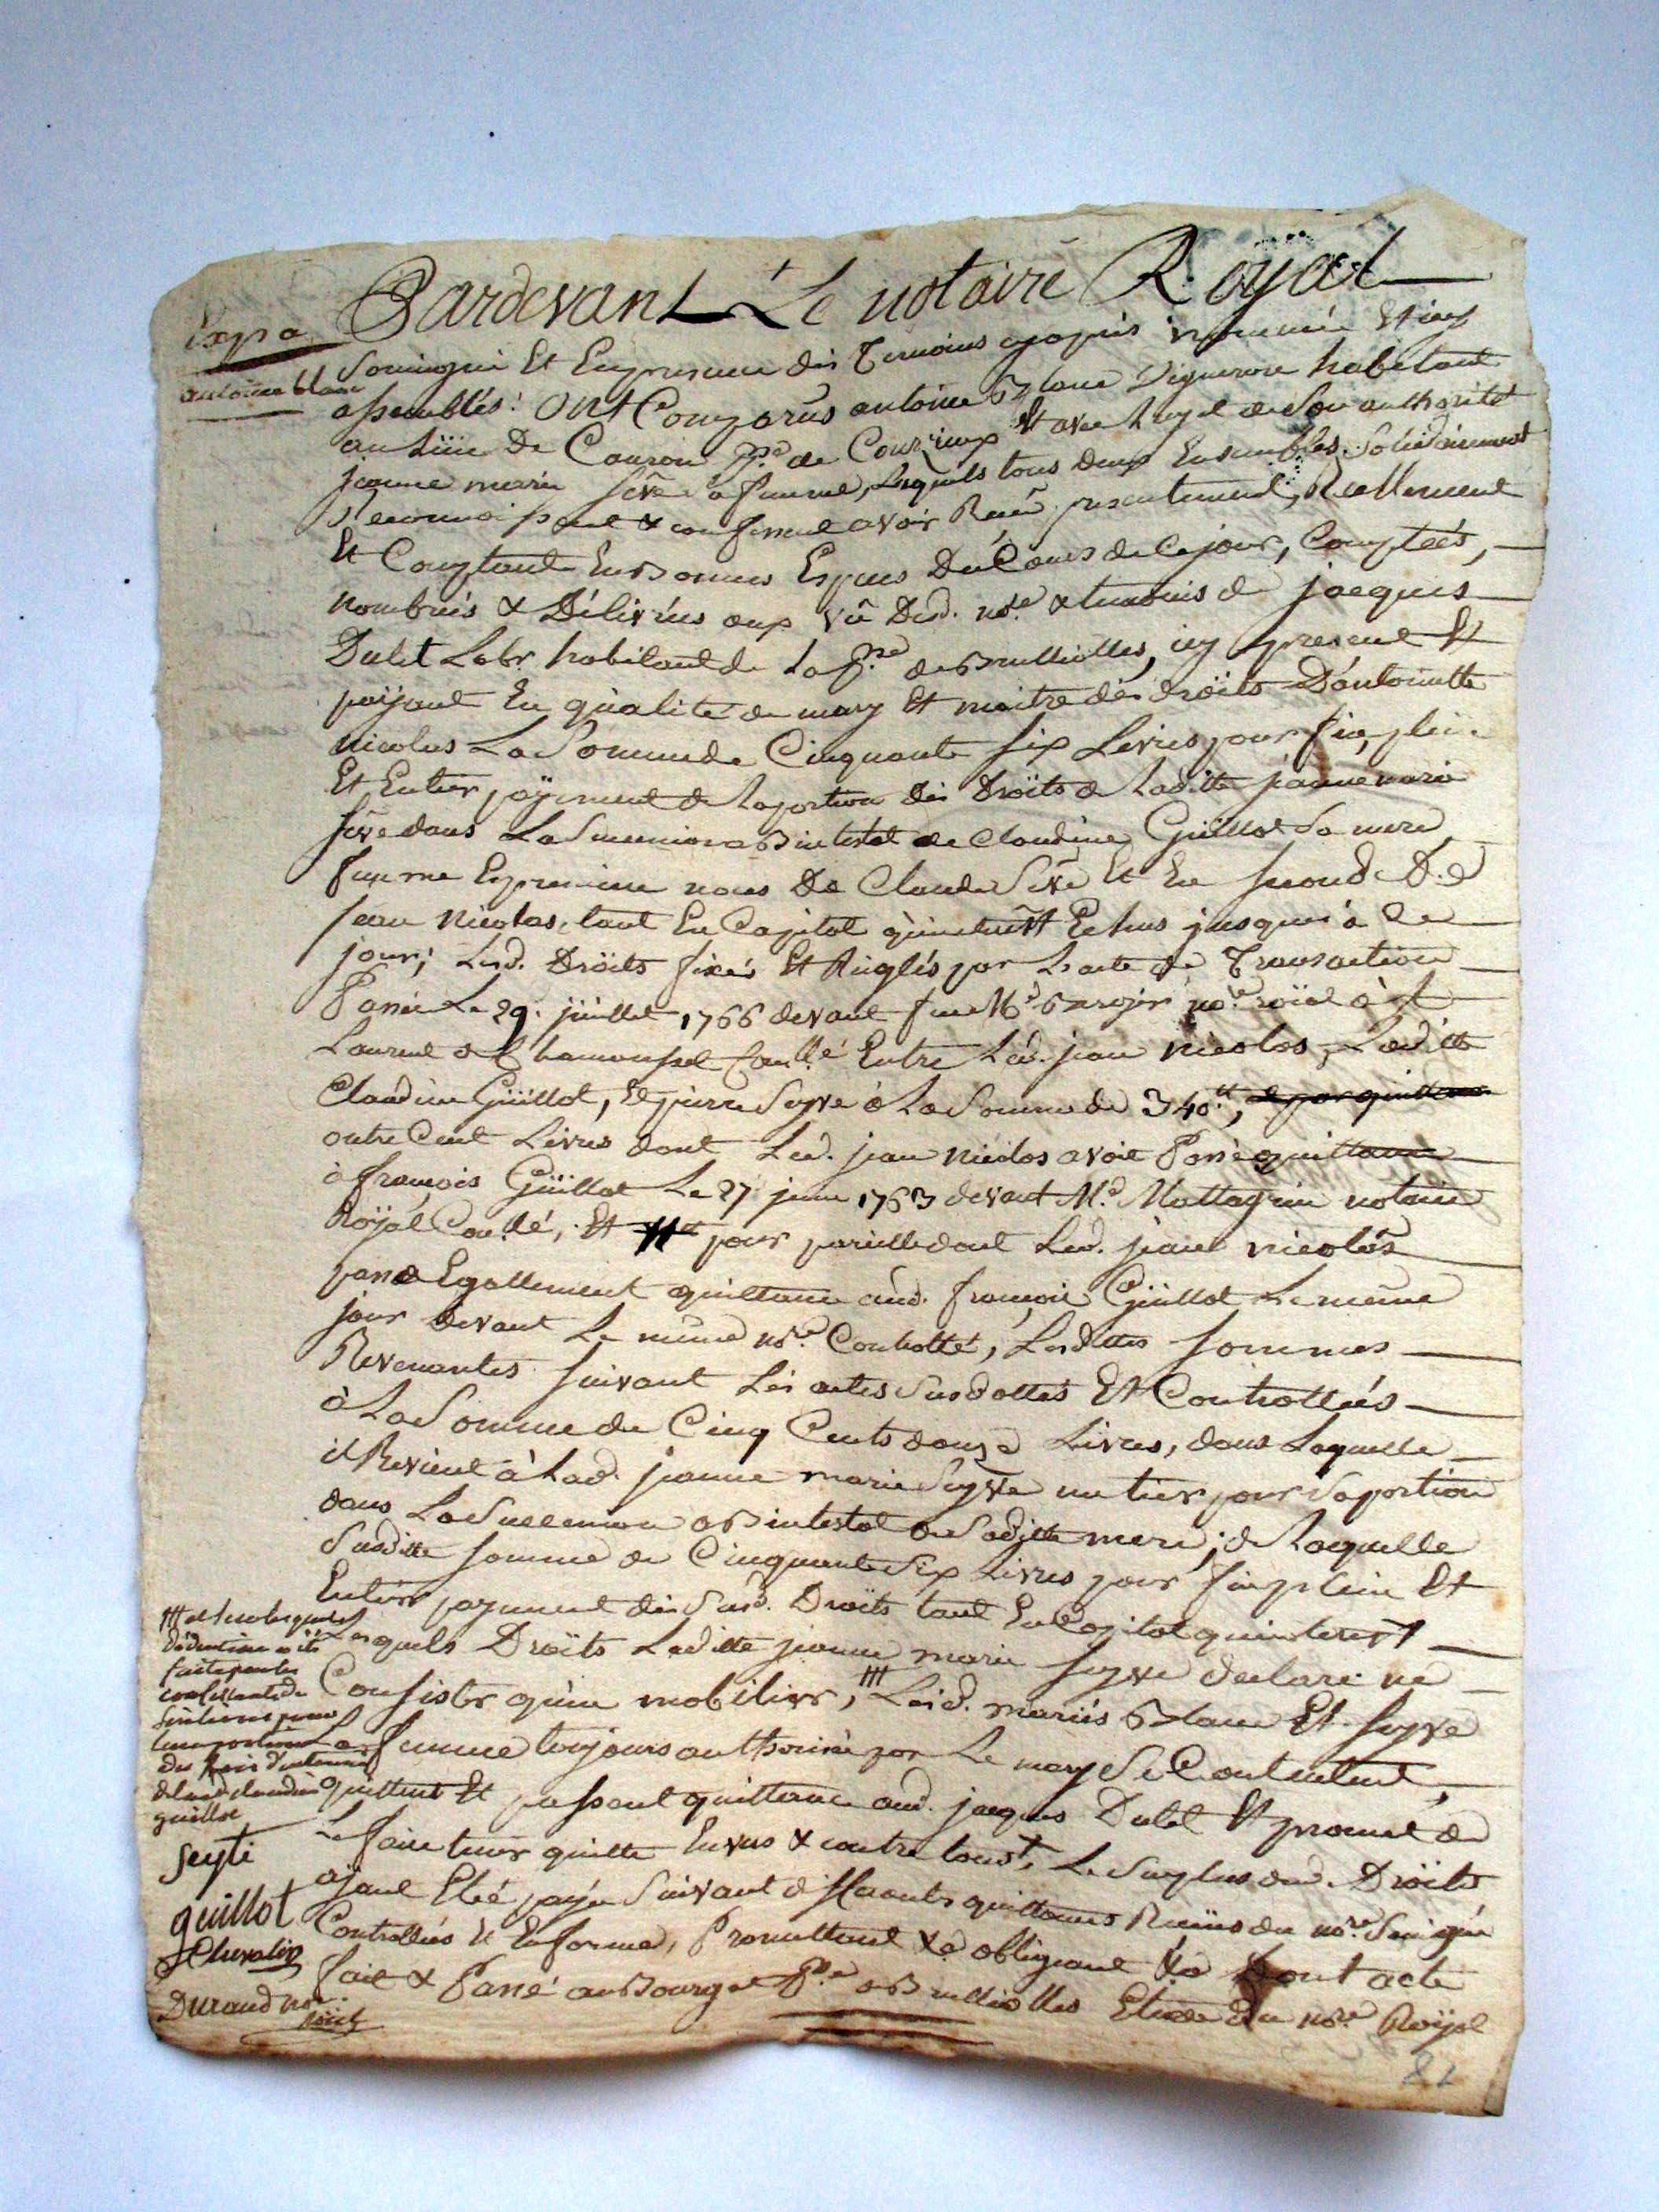 Pardevant Le notaire Royal
Expo
antoine blanc
Soussigné Et En presence des Temoins cy apris nommés Et icy
assemblés: ont Comparus antoine Blanc Vigneron habitant
au Lieu De Cauron psse de Courzieux Et avec luy et de Son authorité
jeanne marie Sêve Sa femme, Lesquels tous deux Ensembles Solidairement
Reconnoissent & confessent avoir Reçû presentement, Reellement
Et Comptant En Bonnes Espèces Du Cours de Ce jour, Comptées,
nombrées & Délivrées aux vû Desd. nore & temoins de jacques
Dulet Labr habitant de La psse de Brullioles, icy present Et
païjant En qualité de mary Et maitre des droits D'antoinette
nicolas La Somme de Cinquante six Livres pour fin, plein
Et Entier, païjement de La portion des Droits de Laditte jeanne marie
Sêve dans La Succession abintestat de Claudine Guillot Sa mere
femme En premieres noces De Claude Sêve Et En secondes D.
jean Nicolas, tant En Capital qu'interêtt Echus jusques à Ce
jour; Lesd. Droits fixés Et Réglés par L'acte de Transaction
Passée Le 29. juillet 1766 devant feu Me nore roïal à St
Laurent de Chamousset Conllé Entre Led. jean nicolas, Laditte
Claudine Guillot, Et pierre Seyve à La Somme de 340tt, et par quittance
outre Cent Livres dont Led. jean nicolas avoit Passé quittance
à françois Guillot Le 27 juin 1763 devant Me. Mattagrin notaire
Roÿal Conllé, Et pour pareille dont Led. jean nicolas
passa Egallement quittance aud. françois Guillot Le même
jour devant Le même nore Controllé, Lesdittes sommes
Revenantes suivant Les actes Susdattés Et Controllés
à La Somme de Cinq Cents douze Livres, dans Laquelle
il Revient à Lad. jeanne marie Seyve un tiers pour Sa portion
dans La Succession abintestat de Saditte mere; de Laquelle
Susditte somme de Cinquante Six Livres pour fin, plein Et
Entier payement des Susd. Droits tant En Capital qu'interest
Lesquels Droits Laditte jeanne marie Seyve declare ne
Consister qu'en mobilier, Lesd. mariés Blanc Et Seyve
La femme toujours authorisée par Le mary Se Contentent,
quittent Et passent quittance aud. jacques Dulet Et promet de
Le faire tenir quitte Envers & contre tous, Le Surplus desd. Droits
aÿant Eté payé Suivant differents quittances Reçües du nore Soussigné
Controllées Et En forme, Promettant &a obligeant &a Dont acte
fait & Passé au Bourg et Psse de Brullioles Etude du nore Roÿal
et sur lesquels
déduction a été
faite par les
contractants de
pour
leur portion
des frais
de lad. claudine
guillot
seyte
guillot
Chevalier
Durand nore
Roïal
82